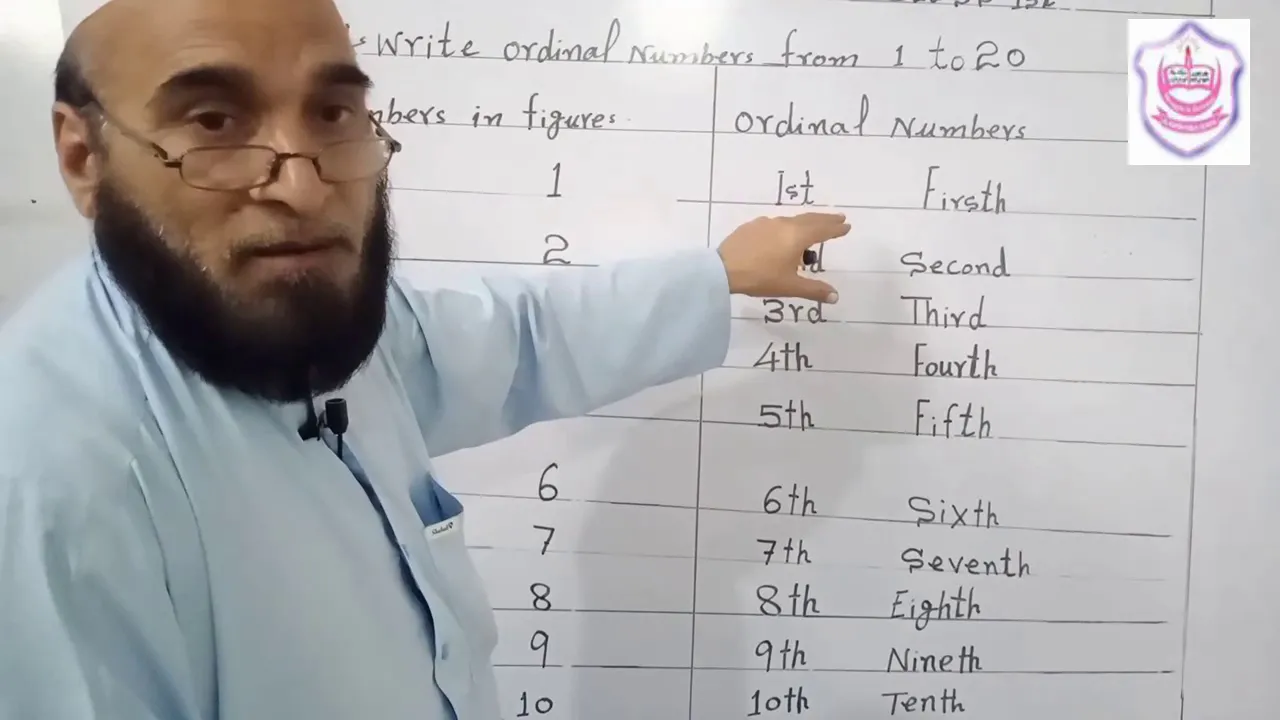 Write ordinal Numbers from 1 to 20
in figures. Ordinal Numbers
1 1st Firsth
2 Second
3rd Third
4th Fourth
5th Fifth
6 6th Sixth
7 7th Seventh
8 8th Eighth
9 9th Nineth
10 10th Tenth